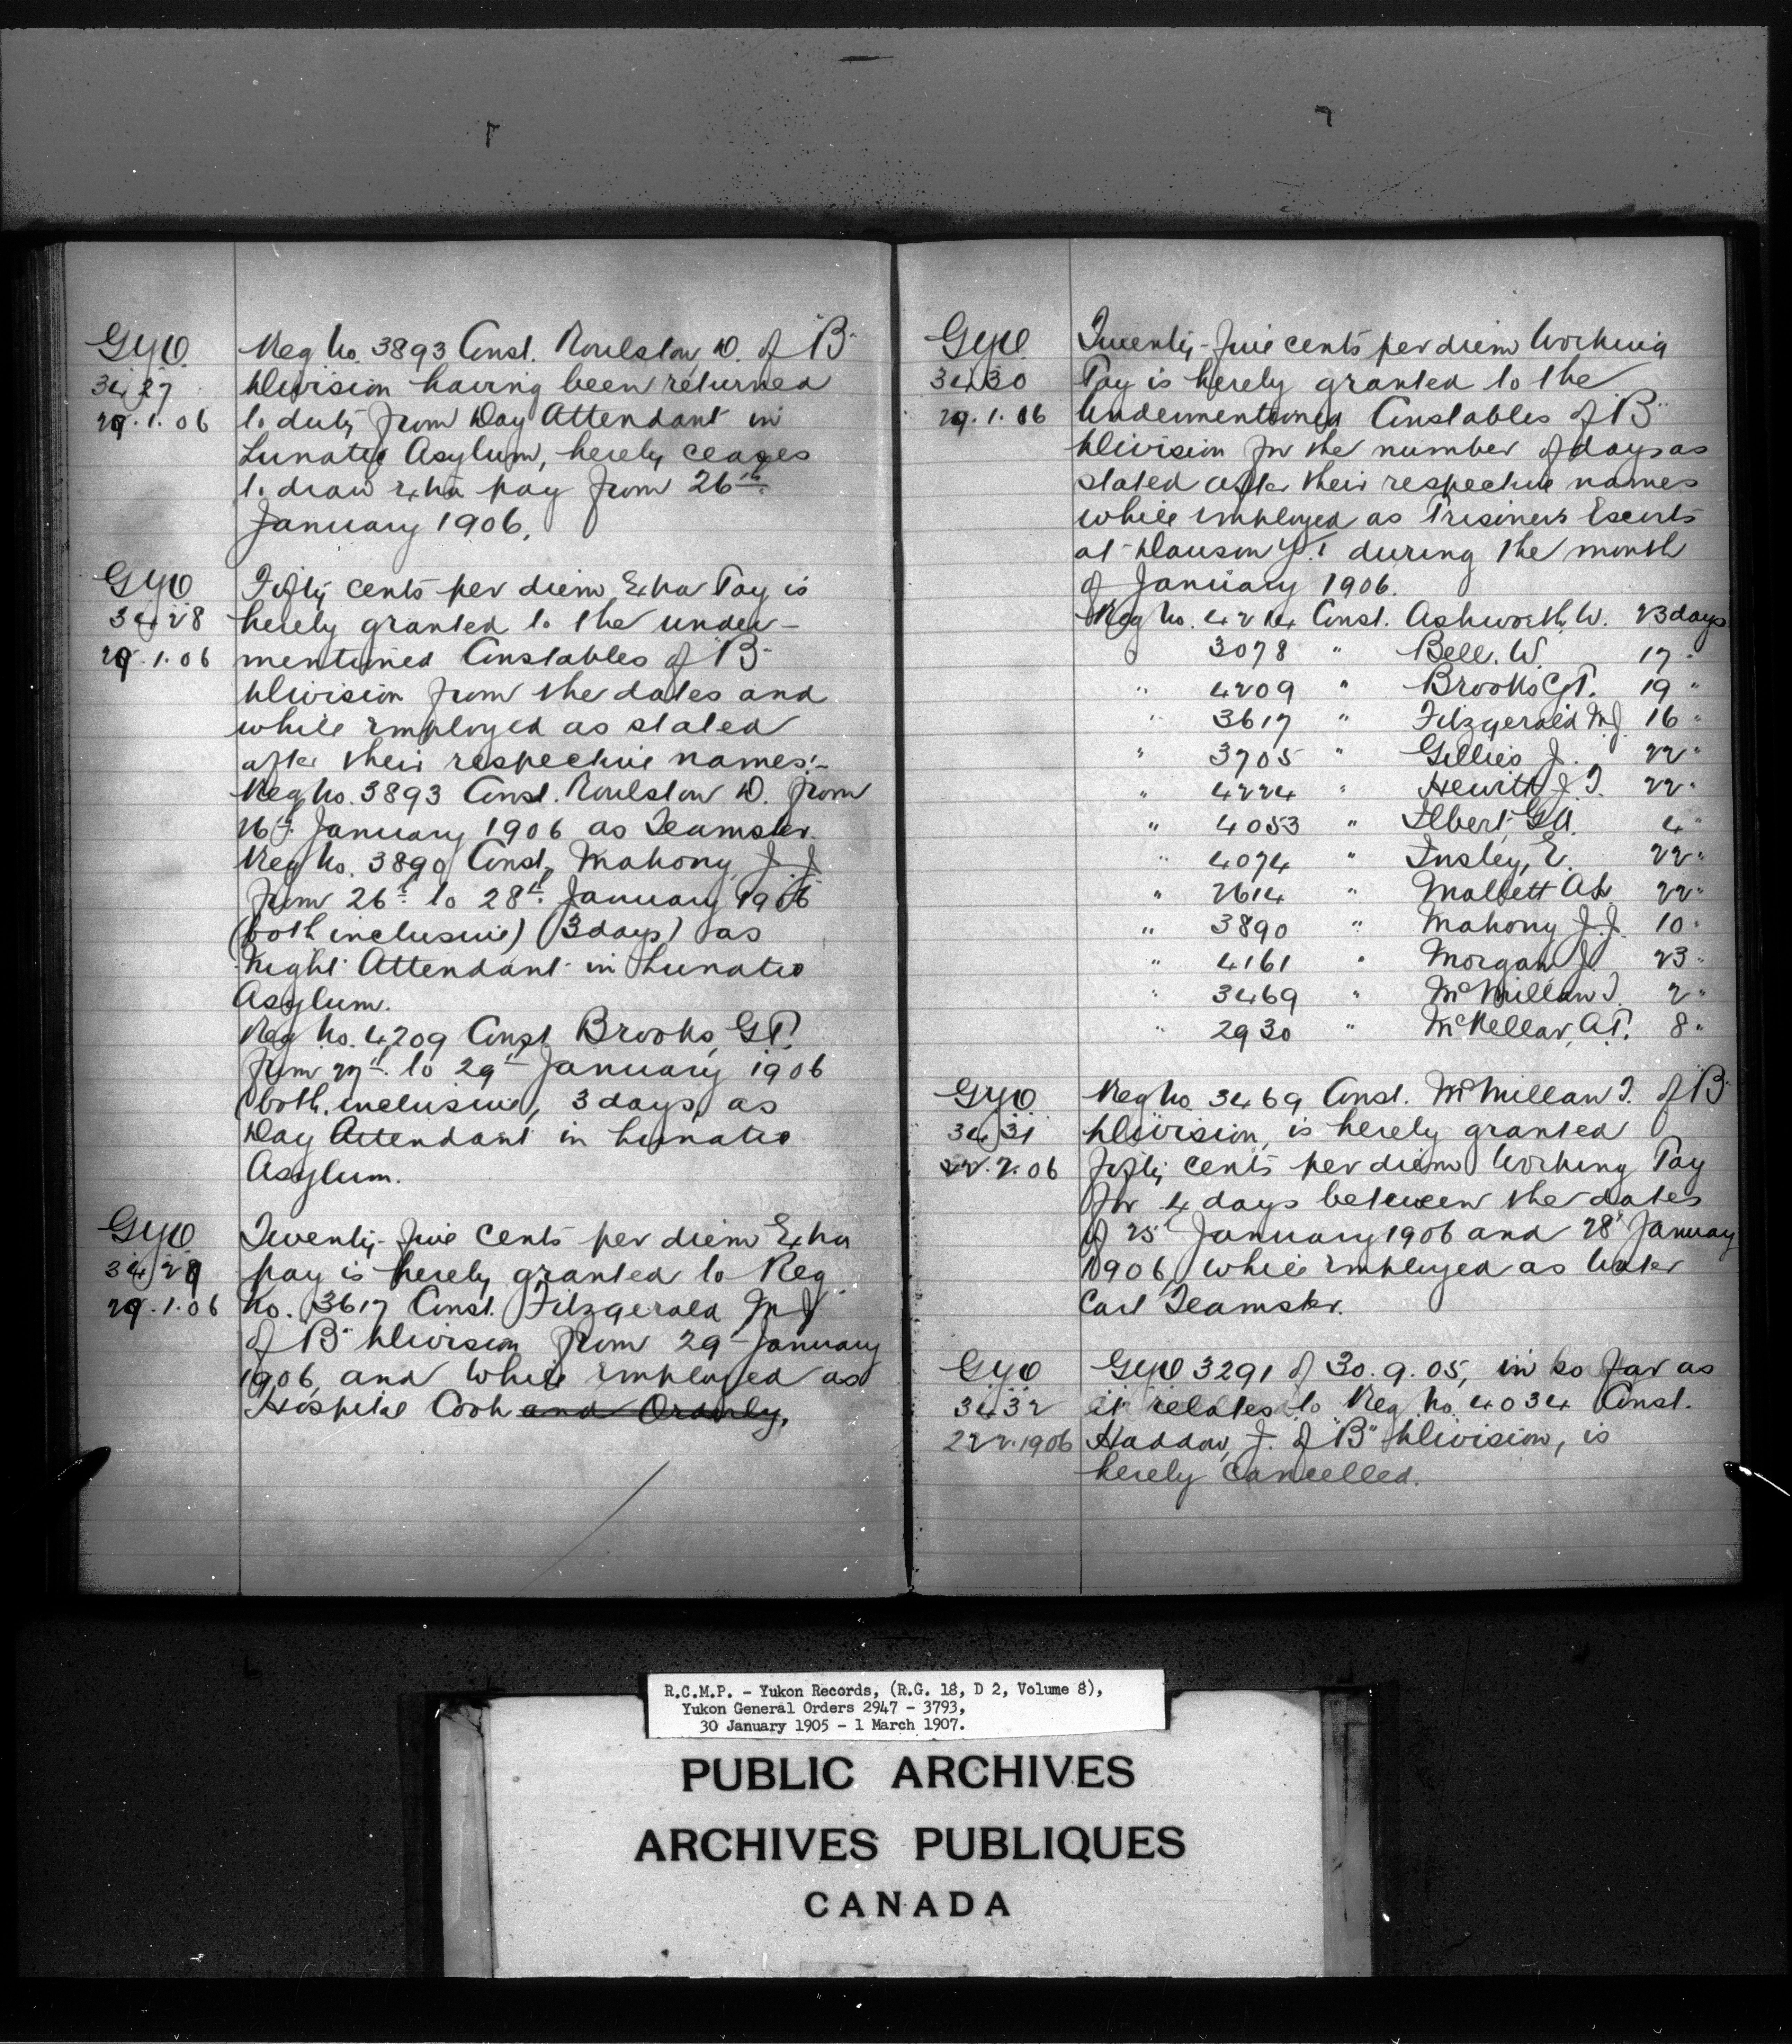 GYO Reg No. 3893 Const. Roulston D. of "B"
3427 Division having been returned
29.1.06 to duty from Day Attendant in
Lunatic Asylum, hereby ceases
to draw extra pay from 26th
January 1906.
GYO Fifty cents per diem Extra Pay is
3428 hereby granted to the under-
29.1.06 mentioned Constables of "B"
Division from the dates and
while employed as stated
after their respective names:-
Reg No. 3893 Const. Roulston D. from
26th January 1906 as Teamster.
Reg No. 3890 Const, Mahony J.J.
from 26th to 28th January 1906
(both inclusive) (3 days) as
Night Attendant in Lunatic
Asylum.
Reg No. 4209 Const Brooks, G.T.
from 27th to 29th January 1906
(both inclusive, 3 days) as
Day Attendant in Lunatic
Asylum.
GYO Twenty-five cents per diem Extra
3429 pay is hereby granted to Reg
29.1.06 No. 3617 Const. Fitzgerald M J
of "B" Division from 29th January
1906, and while employed as
Hospital Cook and Orderly.
GYO Twenty-five cents per diem Working
3430 Pay is hereby granted to the
29.1.06 Undermentioned Constables of "B"
Division for the number of days as
stated after their respective names
while employed as Prisoners Escorts
at Dawson Y.T. during the month
of January 1906.
Reg No. 4214 Const. Ashworth, W. 23 days
3078 " Bell. W. 17 "
" 4209 " Brooks G.T. 19 "
" 3617 " Fitzgerald M.J. 16 "
" 3705 " Gillies J. 22 "
" 4224 " Hewitt J.T. 22 "
" 4053 " Ilbert, G.A. 4 "
" 4074 " Insley, E. 22 "
" 2614 " Mallett 22 "
" 3890 " Mahony J.J. 10 "
" 4161 " Morgan J. 23 "
" 3469 " McMillan T. 2 "
" 2930 " McKellar, A.T. 8 "
GYO Reg No 3469 Const. McMillan T. of "B"
3431 Division, is hereby granted
22.2.06 fifty cents per diem Working Pay
for 4 days between the dates
of 25th January 1906 and 28th January
1906, while employed as Water
Cart Teamster.
GYO GYO 3291 of 30.9.05, in so far as
3432 it relates to Reg No. 4034 Const.
22.2.1906 Haddow, J. of "B" Division, is
hereby cancelled.
R.C.M.P. - Yukon Records, (R.G. 18, D 2, Volume 8),
Yukon General Orders 2947 - 3793,
30 January 1905 - 1 March 1907.
PUBLIC ARCHIVES
ARCHIVES PUBLIQUES
CANADA